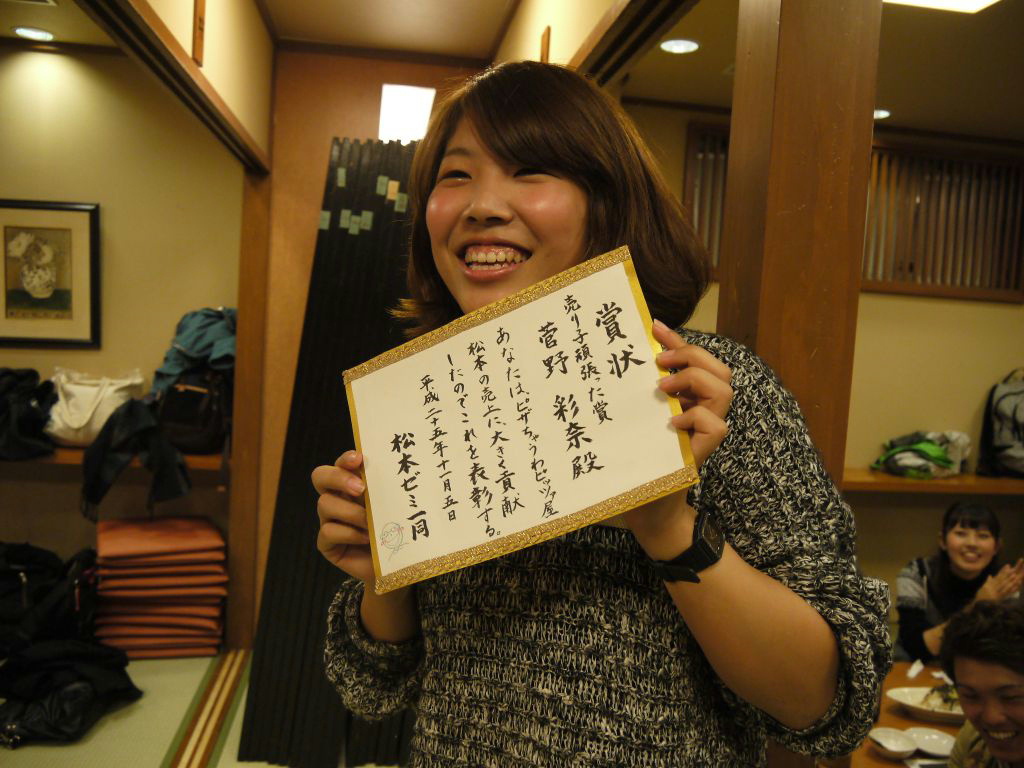 賞状
売り子頑張った賞
菅野 彩奈殿
あなたは、ピザちゃうわピッツァ屋
松本の売上に、大きく貢献
したのでこれを表彰する。
平成二十五年十一月五日
松本ゼミ一同